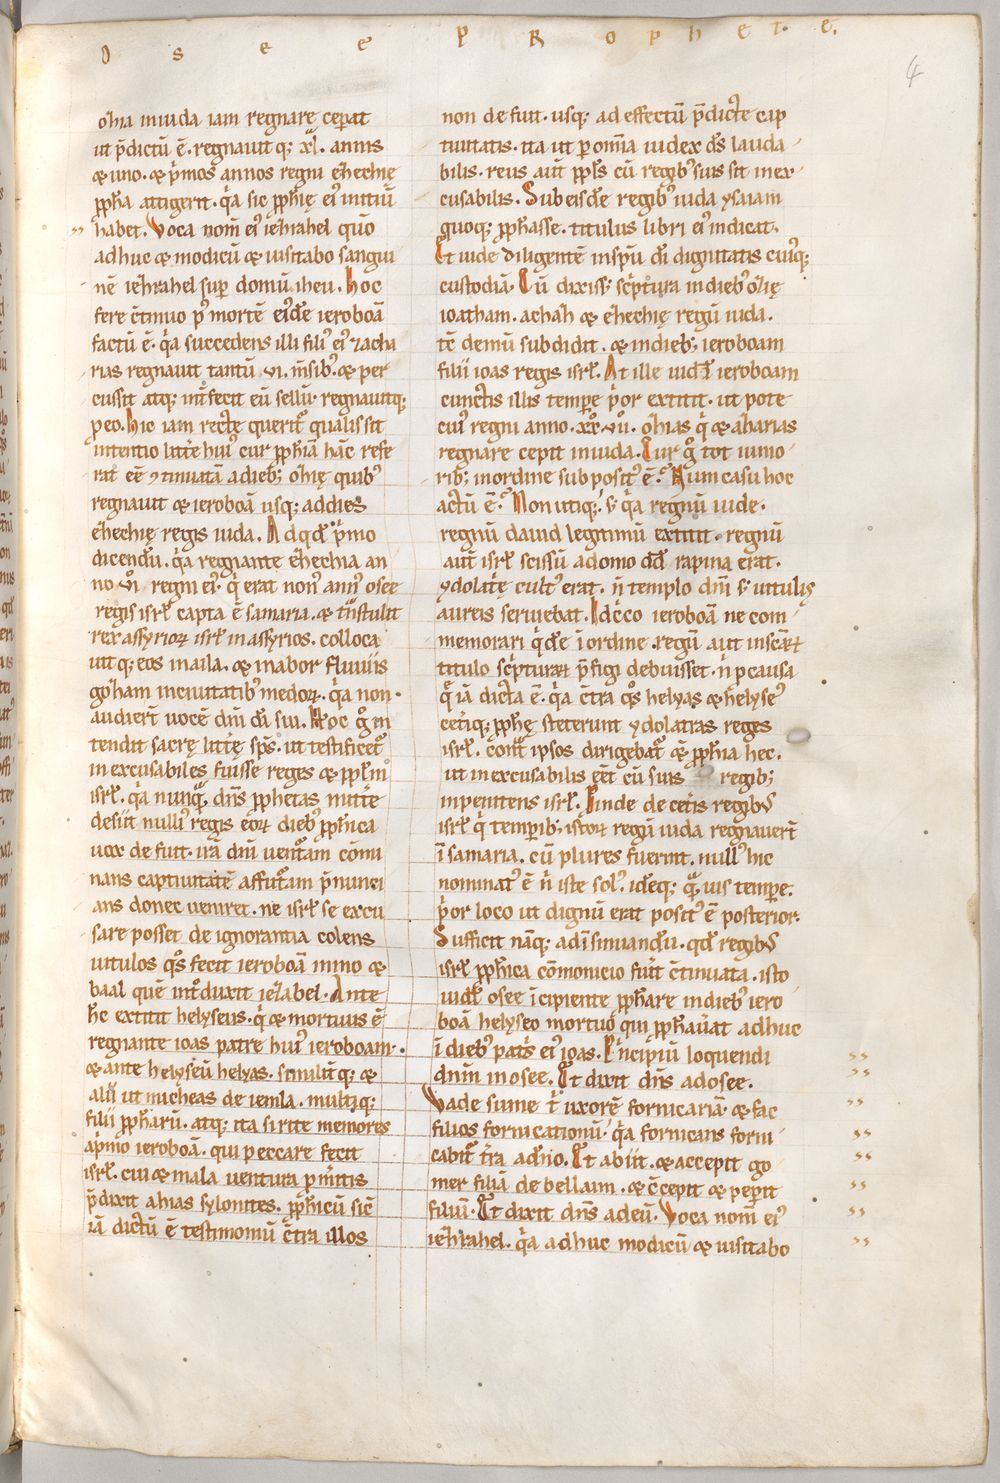 O s e e P R o p h e t e.
4
oh̄ia in iuda iam regnarę ceperat
ut p̄dictū ē. regnauit q; xl. annis
& uno. & p̄mos annos regni ezechię
ꝓph̄ia attigerit. q̄a sic ꝓphię ei' initiū
habet. Voca nom̄ ei' iezrahel quō
adhuc & modicū & uisitabo sangui
nē iezrahel sup̄ domū iheu. Hoc
fere c̄tinuo p' mortē ei'dē ieroboā
factū ē. q̄a succedens illi fili' ei' zacha
rias regnauit tantū vi. m̄sib'. & per
cussit atq; int̄fecit eū sellū. regnauitq;
p eo. Hic iam recte querit̄ qualis sit
intentio littę hui' cur ꝓph̄iā hāc refe
rat eē ꝯtinuatā a dieb; ozię quib'
regnauit & ieroboā usq; ad dies
ezechię regis iuda. Ad qd̄ p̄mo
dicendū. q̄a regnante ezechia an
no vi regni ei'. q̄ erat non' ann' osee
regis isrł capta ē samaria. & t̄nstulit
rex assyrioꝝ isrł in assyrios. colloca
uit q; eos in aila. & in abor fluuiis
gozam in ciuitatib' medoꝝ. q̄a non
audier̄t uocē dn̄i dī sui. Hoc g̊ in
tendit sacrę littę sp̄s. ut testificet̄
inexcusabiles fuisse reges & ppl̄m
isrł. q̄a nunq̄ dn̄s ꝓphetas mitte
desiit null' regis eoꝝ dieb' ꝓph̄ica
uox defuit. irā dn̄i uent̄am cōmi
nans captiuitatē affut̄am p̄nunci
ans donec ueniret. ne isrł se excu
sare posset de ignorantia colens
uitulos q̊s fecit ieroboā mino &
baal quē int̄duxit iezabel. Ante
hc̄ extitit helyseus. q̄ & mortuus ē
regnante ioas patre hui' ieroboam.
& ante helyseū helyas. similit̄q; &
alii ut micheas de iemla. multiq;
filii ꝓphārū. atq; ita si rite memores
a p̄mo ieroboā. qui peccare fecit
isrł. cui & mala uentura p̄mitis
p̄dixit ahias sylonites. ꝓph̄icū sic̄
iā dictū ē testimoniū c̄tra illos
non defuit. usq; ad effectū p̄dictę cap
tiuitatis. ita ut p omīa iudex ds̄ lauda
bilis. reus aut̄ ppl̄s cū regib' suis sit inex
cusabilis. Sub eisdē regib' iuda ysaiam
quoq; ꝓph̄asse. titulus libri ei' indicat.
Et uide diligentē insp̄u dī dignitatis cui'q;
custodiā. Cū dixiss; sc̄ptura in dieb' ozię
ioatham. achah & ezechię regū iuda.
tē demū subdidit. & in dieb; ieroboam
filii ioas regis isrł. At ille uidł ieroboam
cunctis illis tempe p̄or extitit. ut pote
cui' regni anno. xx. vii. ozias q̄ & azarias
regnare cepit in iuda. Cur g̊ tot iunio
rib; in ordine subposit' ē? Num casu hoc
actū ē? Non utiq;. s; q̄a regnū iude
regnū dauid legitimū extitit. regnū
aut̄ isrł scissū a domo dd̄ rapina erat.
ydolatrię cult' erat. n̄ templo dn̄i s; uitulis
aureis seruiebat. Idc̄co ieroboā ne com
memorari q̄dē ī ordine regū aut in sc̄aꝝ
titulo sc̄pturaꝝ p̄figi debuisset. n̄ p causa
q̄ iā dicta ē. q̄a c̄tra q̊s helyas & helyse'
cetiq; ꝓphę steterunt ydolatras reges
isrł. cont̄ ipsos dirigebat̄ & ꝓph̄ia hec.
ut inexcusabilis eēt cū suis regib;
inpenitens isrł. Inde de cetis regib'
isrł q̄ tempib; istoꝝ regū iuda regnauer̄t
ī samaria. cū plures fuerint. null' hic
nominat' ē n̄ iste sol'. ideoq; q̄ uis tempe.
p̄or loco ut dignū erat posit' ē posterior.
Sufficit nāq; ad īsinuandū. qd̄ regib'
isrł ꝓph̄ica cōmonicio fuit c̄tinuata. isto
uidł osee īcipiente ꝓph̄are in dieb' iero
boā helyseo mortuo qui ꝓph̄auat adhuc
ī dieb' pat̄s ei' ioas. P̄ncipiū loquendi
dn̄m in osee. Et dixit dn̄s ad osee.
Vade sume t̄ uxorē fornicariā. & fac
filios fornicationū. q̄a fornicans forni
cabit̄ t̄ra a dn̄o. Et abiit. & accepit go
mer filiā debelaim. & c̄cepit & pepit
filiū. Et dixit dn̄s ad eū. Voca nom̄ ei'
iezrahel. q̄a adhuc modicū & uisitabo